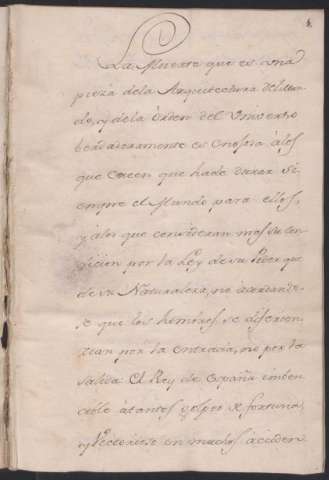 La Muerte que es una
pieza dela Arquitectura del Mun
do, y dela orden del Universo
berdaderamente es enojosa álos
que creen que hade durar si
empre el Mundo para ellos,
y álos que consideran mas su con
dicion por la Ley de su Poder que
de su Naturaleza, no acordando
se que los hombres se diferen
cian por la entrada, no por la
salida. El Rey de España imben
cible átantos golpes de fortuna,
y en muchos acciden